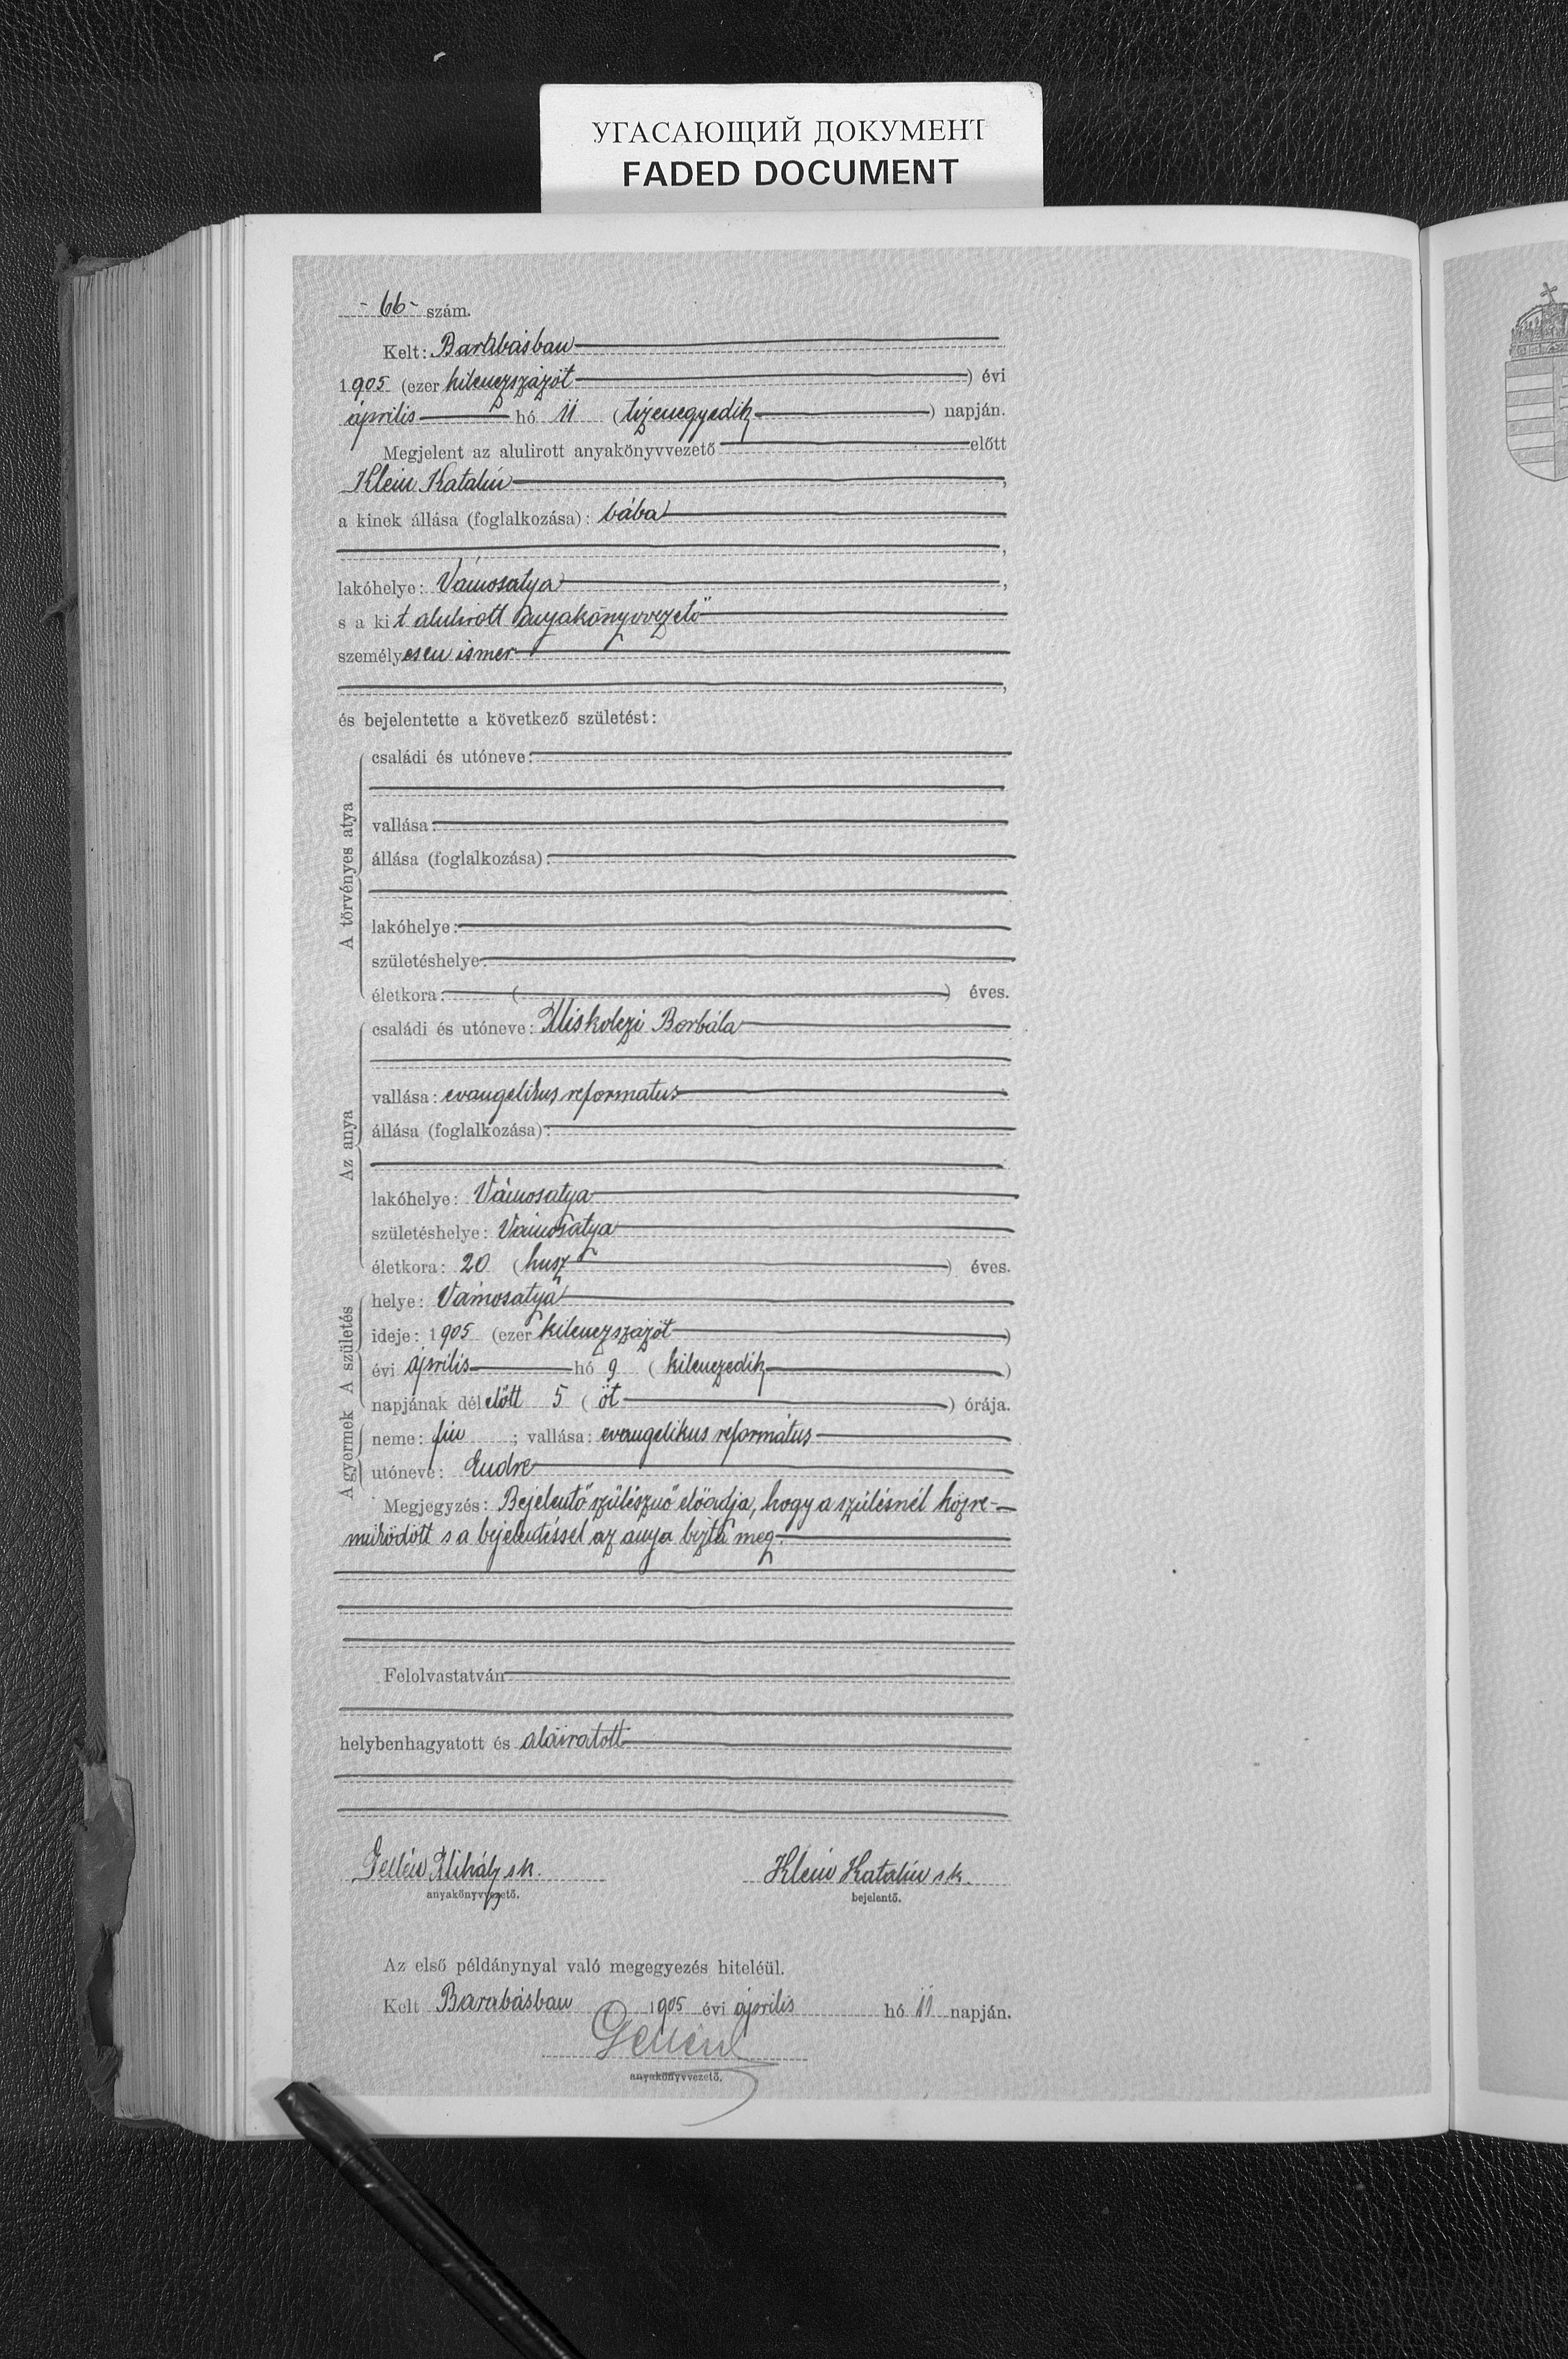 УГАСАЮЩИЙ ДОКУМЕНТ
FADED DOCUMENT
- 66 - szám.
Kelt: Barabásban
1905 (ezer kilenczszázöt) évi
április hó 11 (tizenegyedik) napján.
Megjelent az alulirott anyakönyvvezető előtt
Klein Katalin,
a kinek állása (foglalkozása): bába
,
lakóhelye: Vámosatya,
s a kit alulirott anyakönyvvezető
személyesen ismer
,
és bejelentette a következő születést:
A törvényes atya
családi és utóneve:
vallása:
állása (foglalkozása):
lakóhelye:
születéshelye:
életkora: ( ) éves.
Az anya
családi és utóneve: Miskolczi Borbála
vallása: evangelikus reformatus
állása (foglalkozása):
lakóhelye: Vámosatya
születéshelye: Vámosatya
életkora: 20 (husz) éves.
A születés
helye: Vámosatya
ideje: 1905 (ezer kilenczszázöt)
évi április hó 9 (kilenczedik)
napjának délelőtt 5 (öt) órája.
A gyermek
neme: fiu; vallása: evangelikus református
utóneve: Endre
Megjegyzés: Bejelentő szülésznő előadja, hogy a szülésnél közre-
működött s a bejelentéssel az anya bizta meg.
Felolvastatván
helybenhagyatott és aláiratott
Gellén Mihály sk. Klein Katalin sk.
anyakönyvvezető. bejelentő.
Az első példánynyal való megegyezés hiteléül.
Kelt Barabásban 1905 évi április hó 11 napján.
Gellén
anyakönyvvezető.